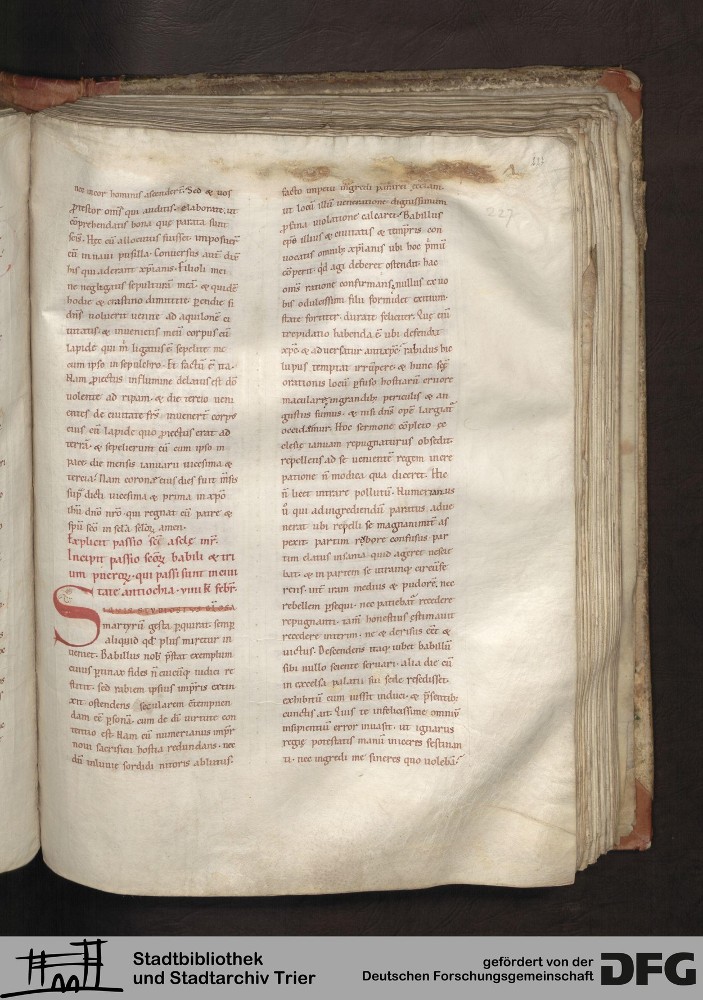 nec in cor hominis ascender̄. Sed & uos
ꝓtestor om̄s qui auditis. elaborate ut
cōprehendatis bona quę parata sunt
sc̄is. Hęc cū allocutus fuisset. imposuer̄
eū in naui pusilla. Conuersus autē dix̄
his qui aderant xp̄ianis. Filioli mei
ne neglegatis sepulturā meā. & quidē
hodie & crastino dimittite. perendie si
dn̄s uoluerit uenite ad aquilonē ci
uitatis. & inuenietis meū corpus cū
lapide qui m̄ ligatus ē. sepelite me
cum ipso in sepulchro. Et factū ē ita.
Nam ꝓiectus in flumine delatus est dō
uolente ad ripam. & die tercio ueni
entes de ciuitate fr̄s. inuener̄t corpꝰ
eius cū lapide quo ꝓiectus erat ad
terrā. & sepelierunt eū cum ipso in
pace. die mensis ianuarii uicesima &
tercia. Nam coronę eius dies fuit
sup̄ dicti uicesima & prima in xp̄o
ih̄u dn̄o nr̄o. qui regnat cū patre &
sp̄u sc̄o in sc̄la sc̄lorꝝ amen.
Explicit passio sc̄i asclę mr̄.
Incipit passio sc̄orꝝ babili & tri
um puerorꝝ. qui passi sunt in ciui
tate antiochia. viiii k̄ febr̄.
S
martyrū gesta ꝑquirat. semꝑ
aliquid qđ plus miretur in
ueniet. Babillus nob̄ p̄stat exemplum
cuius ꝑuinax fides n̄ cuicūq; iudici re
stitit. sed rabiem ipsius imp̄ris extin
xit. ostendens secularem ētempnen
dam eē ꝑsonā. cum de dī uirtute con
tentio est. Nam cū numerianus imp̄r
noui sacrificii hostia redundans. nec
dū inluuie sordidi nitoris ablutus.
facto impetu ingredi
ut locū illū ueneratione dignissimum
ꝓfana uiolatione calcaret. Babillus
ep̄s illius & ciuitatis & temp̄ris con
uocatis omnib; xp̄ianis ubi hoc p̄mū
cōperit. qđ agi deberet ostendit. hac
om̄s ratione confirmans. nullus ex uo
bis o dulcissimi filii formidet exitium.
state fortiter. durate feliciter. Quę enī
trepidatio habenda ē. ubi defendit̄
xp̄c & aduersatur antixp̄c. rabidus hic
lupus temptat irrūpere. & hunc sc̄ę
orationis locū ꝓfuso hostiarū cruore
macularę. in grandib; periculis & an
gustiis sumus. & nisi dn̄s opē largiat̄
occidamur. Hoc sermone cōpleto ęc
clesię ianuam repugnaturus obsedit.
repellens ad se uenientē regem incre
patione n̄ modica qua diceret. Hic
n̄ licet intrare pollutū. Numerianus
ū qui ad ingrediendū paratus adue
nerat. ubi repelli se magnanimit̄ as
pexit. partim rubore confusus. par
tim elatus insania. quid ageret nescie
bat. & in partem se utramq; circūfe
rens. int̄ iram medius & pudorē. nec
rebellem ꝑsequi. nec patiebat̄ recedere
repugnanti. tam̄ honestius ęstimauit
recedere interim. ne & derisus eēt &
uictus. Descendens itaq; iubet babillū
sibi nullo sciente seruari. alia die cū
in excelsa palatii sui sede resedisset.
exhibitū eum iussit induci. & p̄sentib;
cunctis ait. Quis te infelicissime omniū
insipientiū error inuasit. ut ignarus
regię potestatis manū iniceres festinan
ti. nec ingredi me sineres quo uolebā.
227
Stadtbibliothek
und Stadtarchiv Trier
gefördert von der
Deutschen Forschungsgemeinschaft
DFG